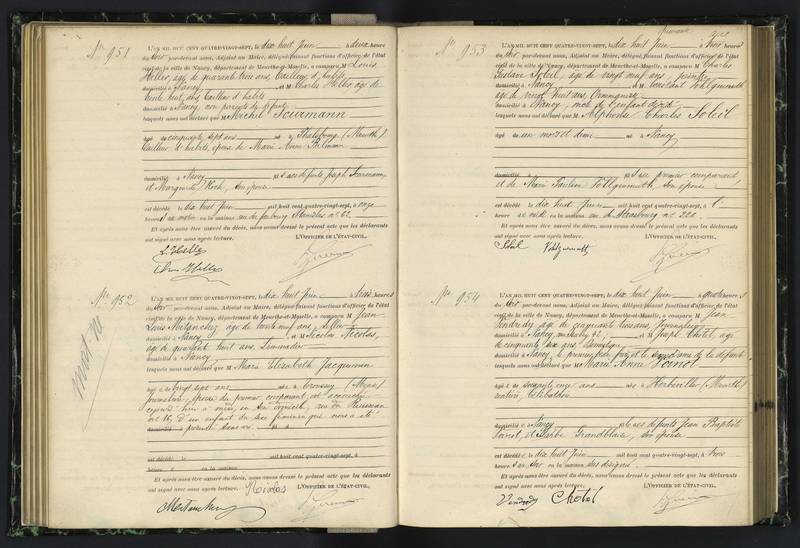 No 951
L'AN MIL HUIT CENT QUATRE-VINGT-SEPT, le dix huit Juin à deux heures
du soir par-devant nous, Adjoint au Maire, délégué faisant fonctions d'officier de l'état
civil de la ville de Nancy, département de Meurthe-et-Moselle, a comparu M Louis
Heller, âgé de quarante trois ans, Tailleur d'habits,
domicilié à Nancy et M Charles Heller, âgé de
trente huit ans, Tailleur d'habits
domicilié à Nancy, non parents du défunt
lesquels nous ont déclaré que M Michel
âgé de cinquante sept ans né à Phalsbourg (Meurthe)
Tailleur d'habits, époux de Marie Anne
domicilié à Nancy fils des défunts Joseph
et Marguerite Koch, son épouse
est décédé le dix huit Juin mil huit cent quatre-vingt-sept, à onze
heures du matin en la maison rue du faubourg Stanislas no 62
Et après nous être assuré du décès, nous avons dressé le présent acte que les déclarants
ont signé avec nous après lecture. L'OFFICIER DE L'ÉTAT-CIVIL,
L. Heller
No 952
L'AN MIL HUIT CENT QUATRE-VINGT-SEPT, le dix huit Juin à trois heures
du soir par-devant nous, Adjoint au Maire, délégué faisant fonctions d'officier de l'état
civil de la ville de Nancy, département de Meurthe-et-Moselle, a comparu M Jean
Louis âgé de trente neuf ans, Sellier
domicilié à Nancy et M Nicolas Nicolas,
âgé de quarante huit ans, Limonadier
domicilié à Nancy
lesquels nous ont déclaré que M Marie Elizabeth Jacquemin
âgée de vingt sept ans née à (Meuse)
Journalière, épouse du premier comparant est accouchée
no 16, d'un enfant du sexe féminin que mère a été
domicilié à présenté sans vie
est décédé le mil huit cent quatre-vingt-sept, à
heure en la maison
Et après nous être assuré du décès, nous avons dressé le présent acte que les déclarants
ont signé avec nous après lecture. Nicolas L'OFFICIER DE L'ÉTAT-CIVIL,
No 953
L'AN MIL HUIT CENT QUATRE-VINGT-SEPT, le dix huit Juin à trois heures
du soir par-devant nous, Adjoint au Maire, délégué faisant fonctions d'officier de l'état
civil de la ville de Nancy, département de Meurthe-et-Moselle, a comparu M Charles
Gustave Soleil, âgé de vingt neuf ans, peintre
domicilié à Nancy et M Constant Vohlgemuth
âgé de vingt huit ans,
domicilié à Nancy, oncle de l'enfant décédé
lesquels nous ont déclaré que M Alphonse Charles Soleil
âgé de un mois et demi né à Nancy
domicilié à fils du premier comparant
et de Marie Pauline Vohlgemuth, son épouse
est décédé le dix huit Juin mil huit cent quatre-vingt-sept, à
heure en la maison rue de Strasbourg no 220
Et après nous être assuré du décès, nous avons dressé le présent acte que les déclarants
ont signé avec nous après lecture. L'OFFICIER DE L'ÉTAT-CIVIL,
Soleil Vohlgemuth
No 954
L'AN MIL HUIT CENT QUATRE-VINGT-SEPT, le dix huit Juin à quatre heures
du soir par-devant nous, Adjoint au Maire, délégué faisant fonctions d'officier de l'état
civil de la ville de Nancy, département de Meurthe-et-Moselle, a comparu M Jean
Vendredy âgé de cinquante trois ans,
domicilié à Nancy et M Joseph Chotel, âgé
de cinquante six ans,
domicilié à Nancy, le premier beau frère et le second ami de la défunte
lesquels nous ont déclaré que M Marie Anne Voinot
âgée de soixante onze ans née à Herbéviller (Meurthe)
rentière, Célibataire
domiciliée à Nancy fille des défunts Jean Baptiste
Voinot, et Barbe Grandblaise, son épouse
est décédée le dix huit Juin mil huit cent quatre-vingt-sept, à trois
heures du soir en la maison sus désignée.
Et après nous être assuré du décès, nous avons dressé le présent acte que les déclarants
ont signé avec nous après lecture. L'OFFICIER DE L'ÉTAT-CIVIL,
Vendredy Chotel